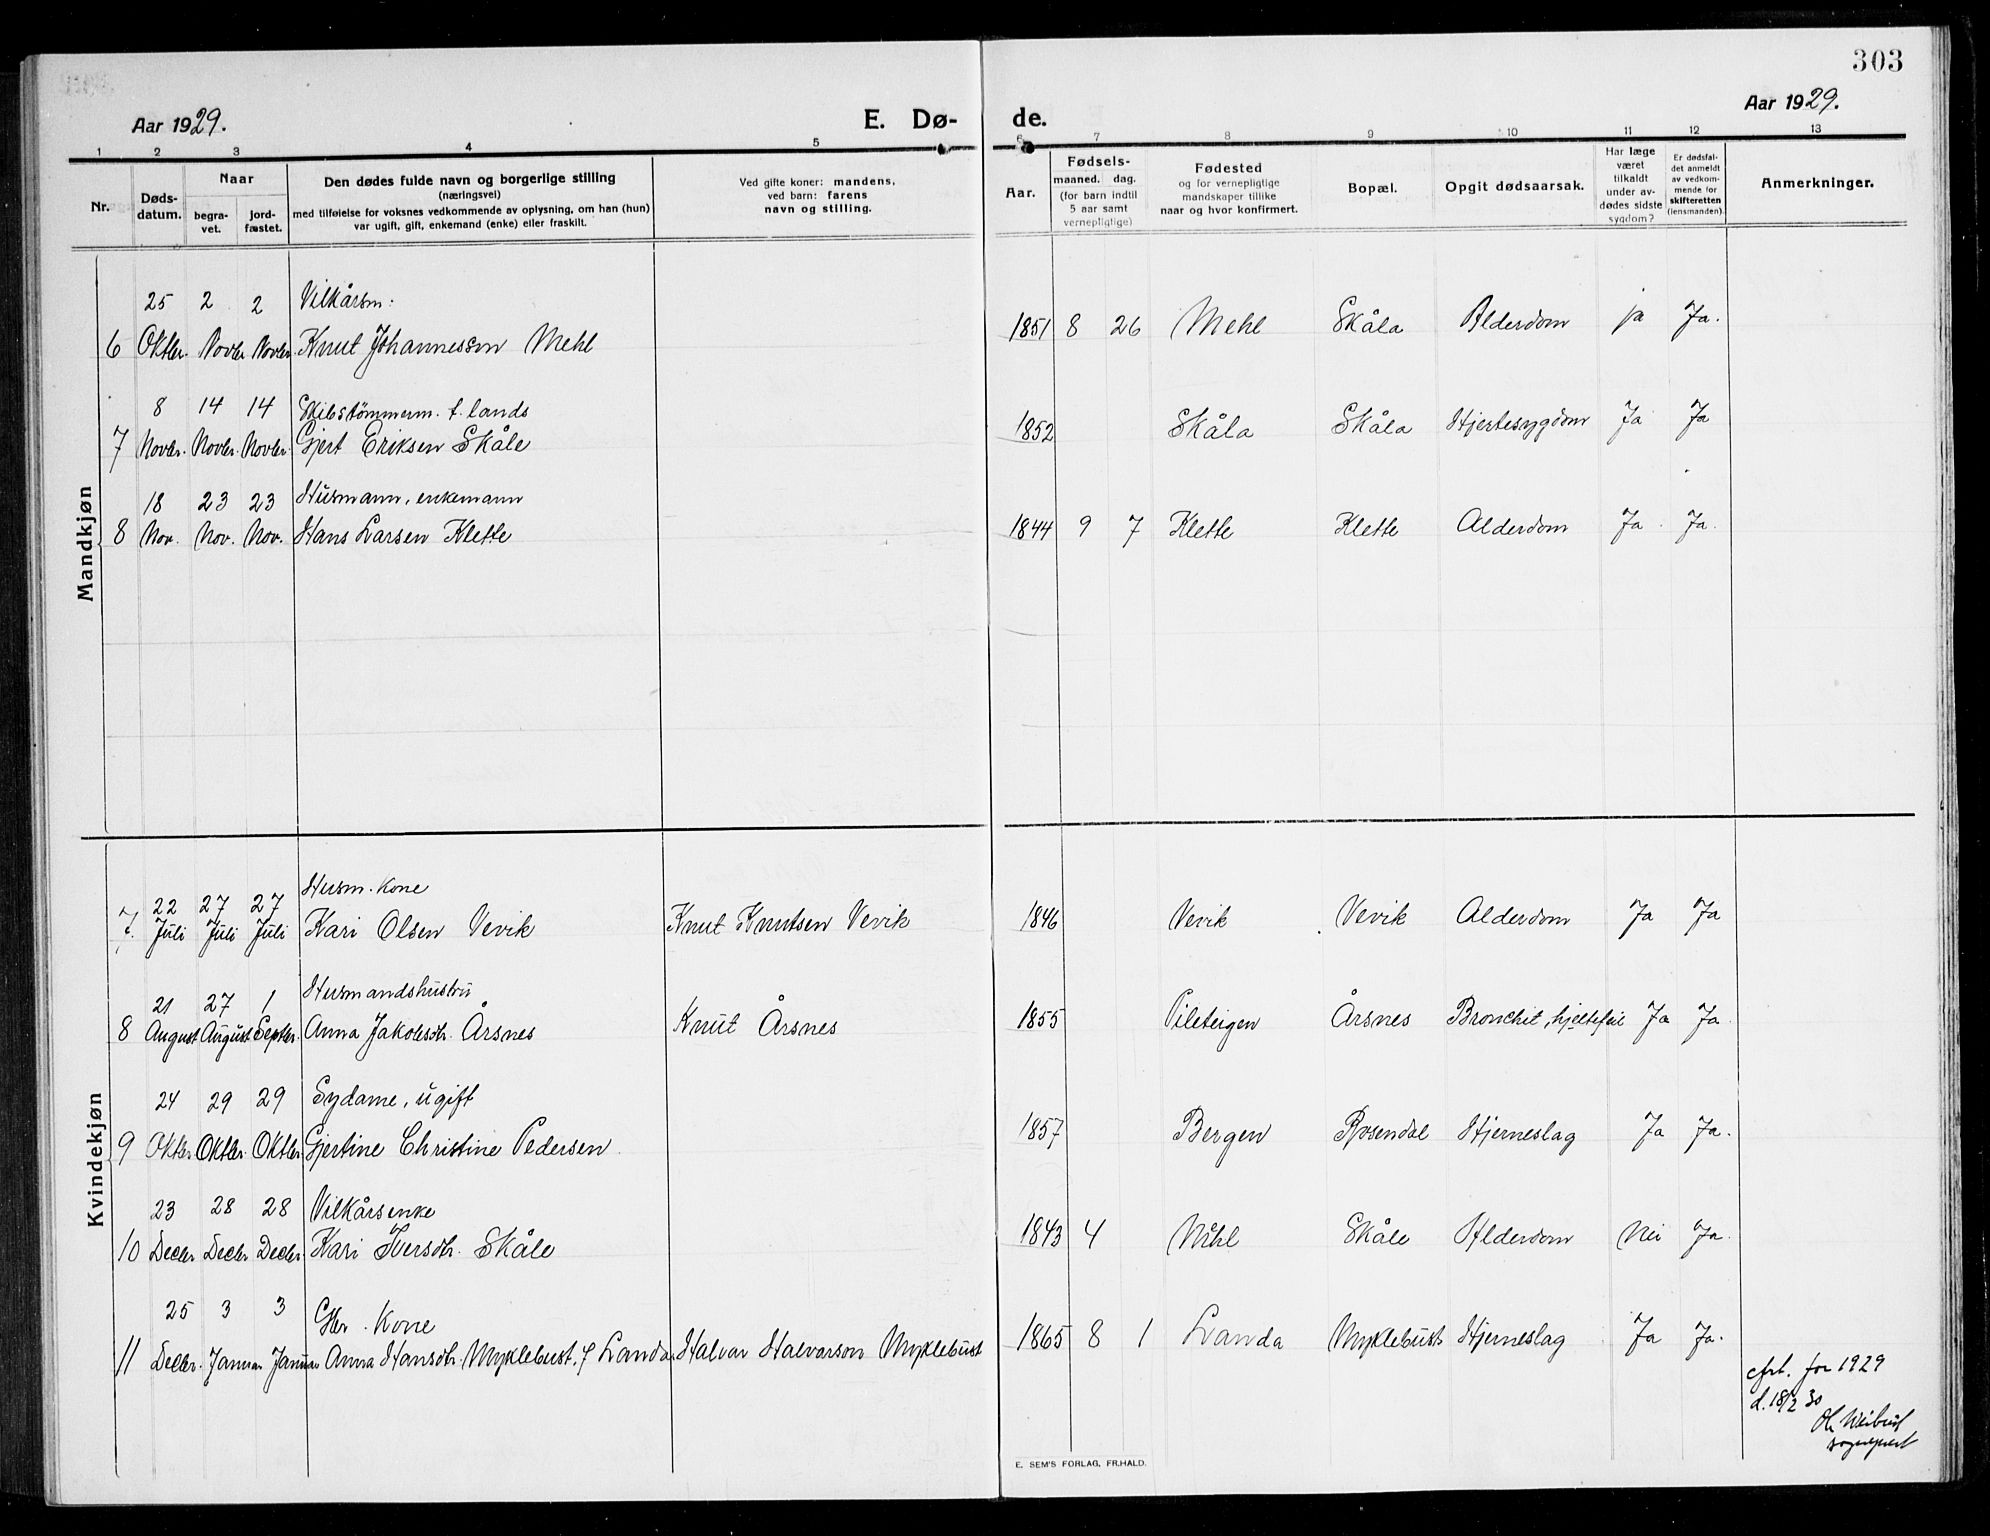 303
Aar 1929.
E. Dø- de.
Aar 1929.
1 2 3 4 5 6 7 8 9 10 11 12 13
Nr.
Døds-
datum.
Naar
begra-
vet.
jord-
fæstet.
Den dødes fulde navn og borgerlige stilling
(næringsvei)
med tilføielse for voksnes vedkommende av oplysning, om han (hun)
var ugift, gift, enkemand (enke) eller fraskilt.
Ved gifte koner: mandens,
ved barn: farens
navn og stilling.
Aar.
Fødsels-
maaned. dag.
(for barn indtil
5 aar samt
vernepligtige)
Fødested
og for vernepligtige
mandskaper tillike
naar og hvor konfirmert.
Bopæl.
Opgit dødsaarsak.
Har læge
været
tilkaldt
under av-
dødes sidste
sygdom?
Er dødsfal-
det anmeldt
av vedkom-
mende for
skifteretten
(lensmanden).
Anmerkninger.
Mandkjøn
25 2 2 Vilkårsm:
6 Oktbr. Novbr Novbr. Knut Johannesson Mehl 1851 8 26 Mehl Skåla Alderdom ja Ja.
8 14 14 Skibstømmerm. t. lands
7 Novbr. Novbr. Novbr. Gjert Eriksen Skåle 1852 Skåla Skåla Hjertesygdom Ja Ja
18 23 23 Husmann, enkemann
8 Nov. Nov. Nov. Hans Larsen Klette 1844 9 7 Klette Klette Alderdom Ja Ja.
Kvindekjøn
22 27 27 Husm. kone
7. Juli Juli Juli Kari Olsen Vevik Knut Knutsen Vevik 1846 Vevik Vevik Alderdom Ja Ja
21 27 1 Husmandshustru
8 August August Septbr. Anna Jakobsdtr. Årsnes Knut Årsnes 1855 Pileteigen Årsnes Bronchit, hjertefeil Ja Ja
24 29 29 Sydame, ugift
9 Oktbr Oktbr. Oktbr Gjertine Christine Pedersen 1857 Bergen Rosendal Hjerneslag Ja Ja.
23 28 28 Vilkårsenke
10 Decbr Decbr Decbr. Kari Iversdtr. Skåle 1843 4 Mehl Skåle Alderdom Nei Ja.
25 3 3 Gbr. Kone
11 Decbr. Januar Januar Anna Hansdtr. Myklebust, f Landa Halvar Halvarson Myklebust 1865 8 1 Landa Myklebust Hjerneslag Ja Ja.
for 1929
d. 18/2 30
E. SEM'S FORLAG, FR.HALD.